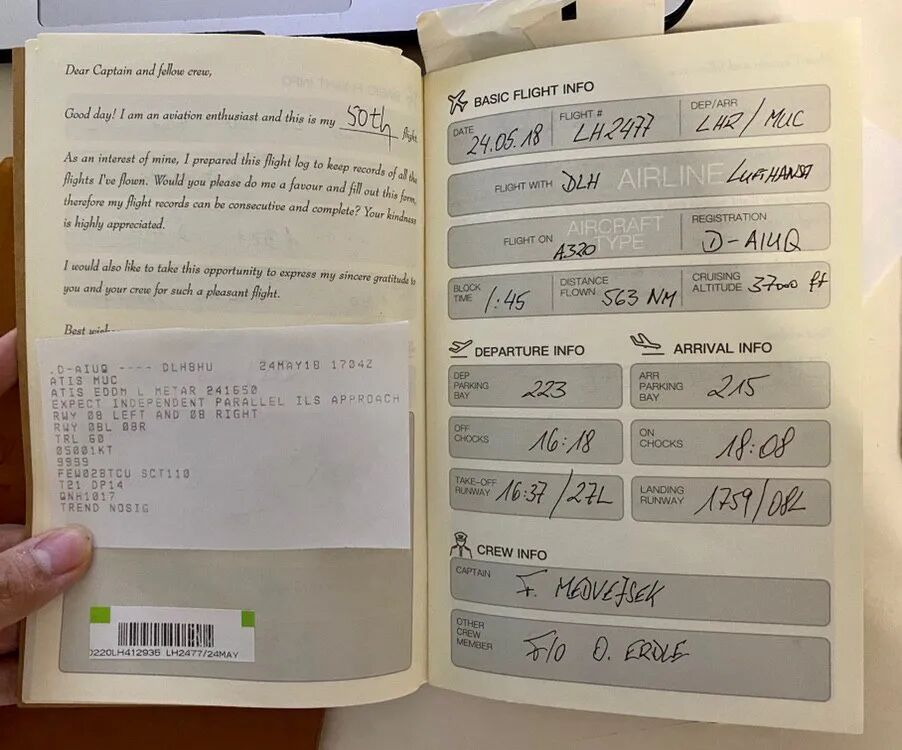 Dear Captain and fellow crew,
Good day! I am an aviation enthusiast and this is my 50th flight.
As an interest of mine, I prepared this flight log to keep records of all the
flights I've flown. Would you please do me a favour and fill out this form,
therefore my flight records can be consecutive and complete? Your kindness
is highly appreciated.
I would also like to take this opportunity to express my sincere gratitude to
you and your crew for such a pleasant flight.
Best
.D-AIUQ ---- DLH8HU 24MAY18 1704Z
ATIS MUC
ATIS EDDM L METAR 241650
EXPECT INDEPENDENT PARALLEL ILS APPROACH
RWY 08 LEFT AND 08 RIGHT
RWY 08L 08R
TRL 60
05001KT
9999
FEW028TCU SCT110
T21 DP14
QNH1017
TREND NOSIG
0220LH412935 LH2477/24MAY
BASIC FLIGHT INFO
DATE 24.05.18 FLIGHT # LH2477 DEP/ARR LHR / MUC
FLIGHT WITH DLH AIRLINE LUFTHANSA
FLIGHT ON A320 AIRCRAFT TYPE REGISTRATION D-AIUQ
BLOCK TIME 1:45 DISTANCE FLOWN 563 NM CRUISING ALTITUDE 37000 ft
DEPARTURE INFO
DEP PARKING BAY 223
OFF CHOCKS 16:18
TAKE-OFF RUNWAY 16:37 / 27L
ARRIVAL INFO
ARR PARKING BAY 215
ON CHOCKS 18:08
LANDING RUNWAY 1759 / 08L
CREW INFO
CAPTAIN F. MEDVEJSEK
OTHER CREW MEMBER F/O O. ERDLE